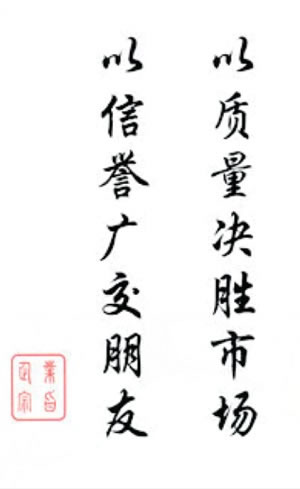 以质量决胜市场
以信誉广交朋友